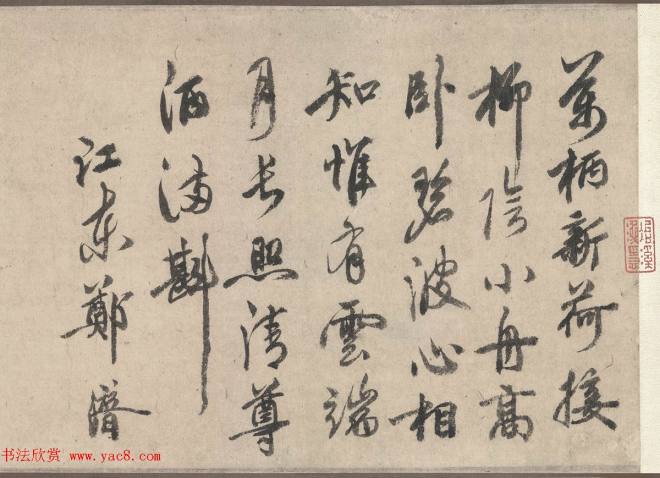 万柄新荷接
柳陰小舟高
卧碧波心相
知惟有雲端
月長照清尊
酒満斟
江東鄭濟
书法欣赏 www.yac8.com